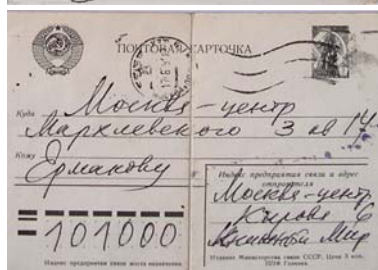 ПОЧТОВАЯ КАРТОЧКА
Куда Москва-центр
Мархлевского 3 кв 14
Кому Ермакову
Индекс предприятия связи и адрес отправителя
Москва-центр
Кирова 6
101000
Индекс предприятия связи места назначения
Издание Министерства связи СССР. Цена 3 коп.